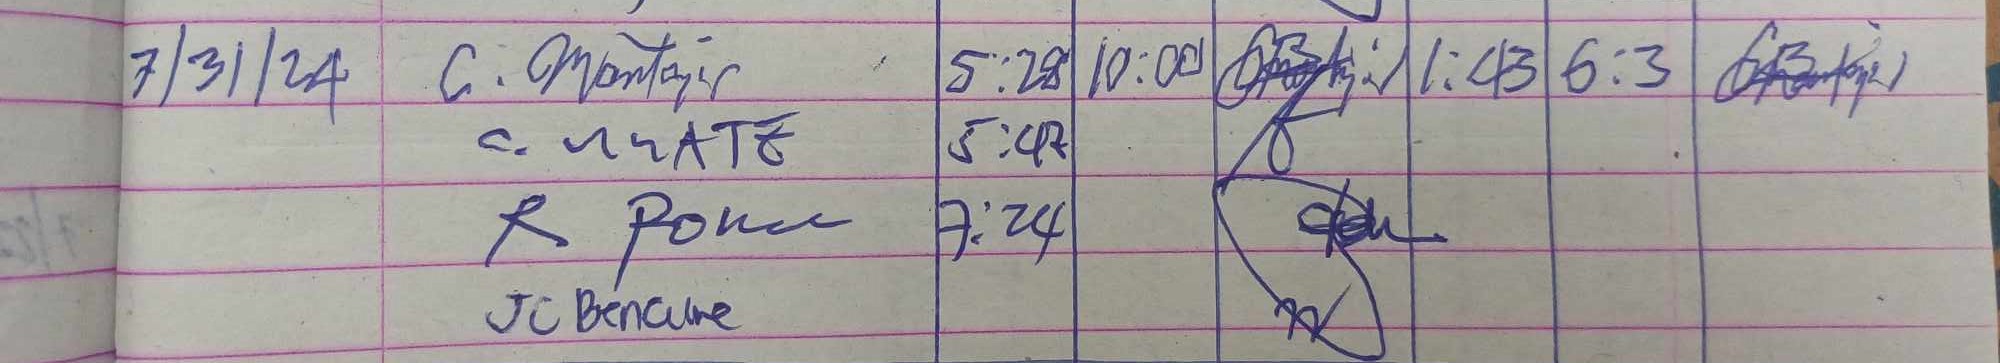 7/31/24 C. Montejir 5:28 10:00 1:43 6:3
C. 5:47
R Ponce 7:24
JC Bencure